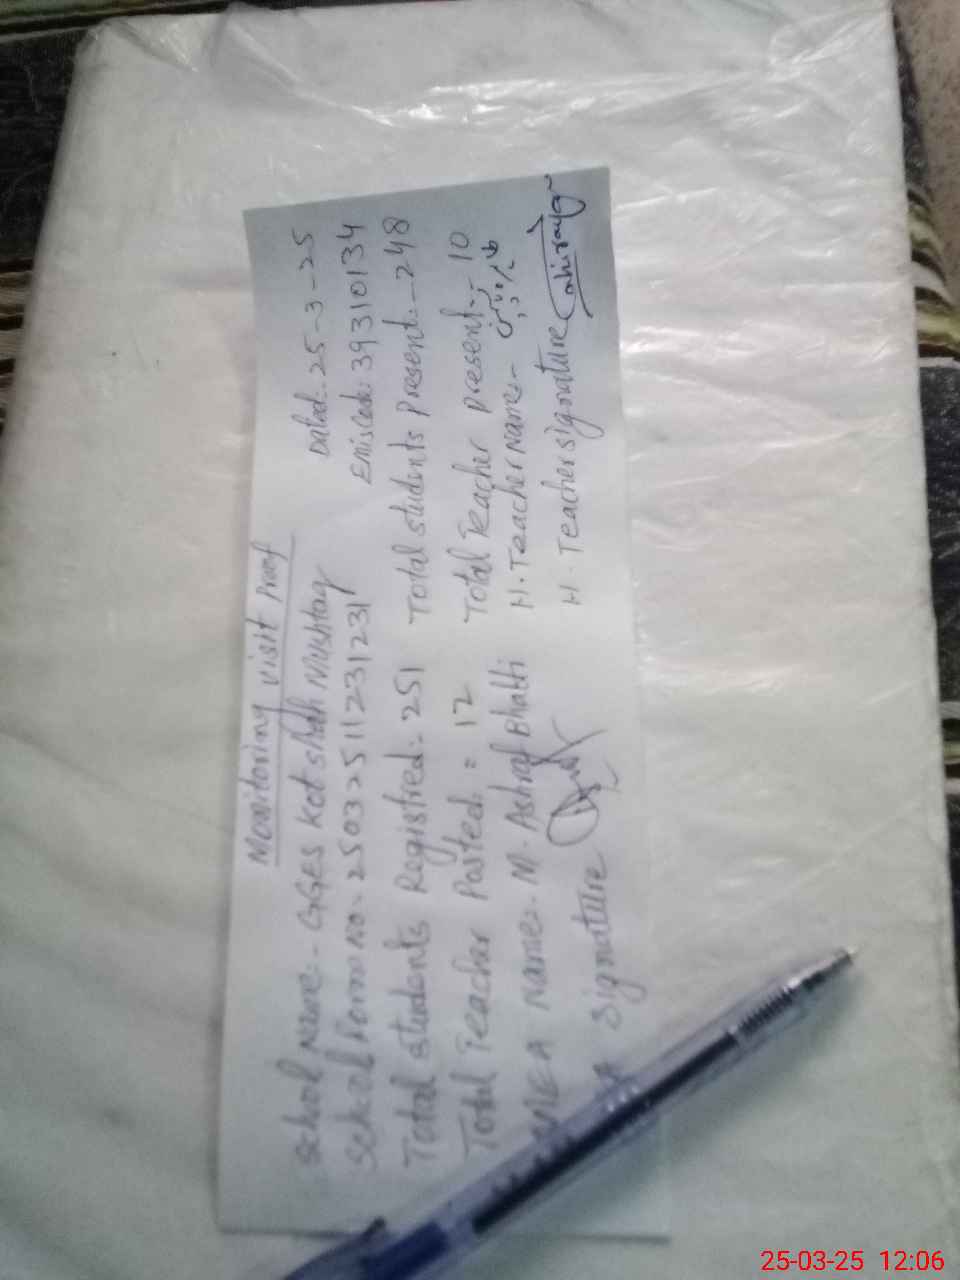 Monitoring visit Proof
School Name:- GGES Kot Shah Mushtaq Dated:- 25-3-25
School Form No- 250325112312311 Emis Code: 39310134
Total students Registred:- 251 Total students Present:- 248
Total Teacher Posted = 12 Total Teacher Present:- 10
MEA Name:- M. Ashraf Bhatti H. Teacher Name:-
Signature H. Teacher Signature
25-03-25 12:06